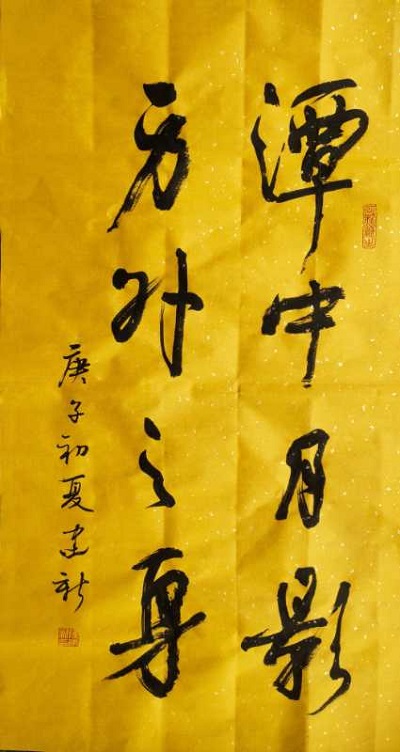 潭中月影
方外之身
庚子初夏建新